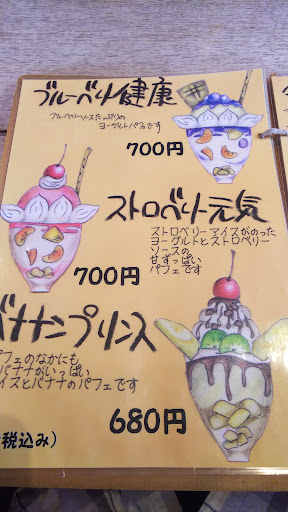 ブルーベリー健康
ブルーベリーソースたっぷりの
ヨーグルトパフェです
700円
ストロベリー元気
ストロベリーアイスがのった
ヨーグルトとストロベリー
ソースの
甘ずっぱい
パフェです
700円
バナナンプリンス
パフェのなかにも
バナナがいっぱい
アイスとバナナのパフェです
680円
税込み)